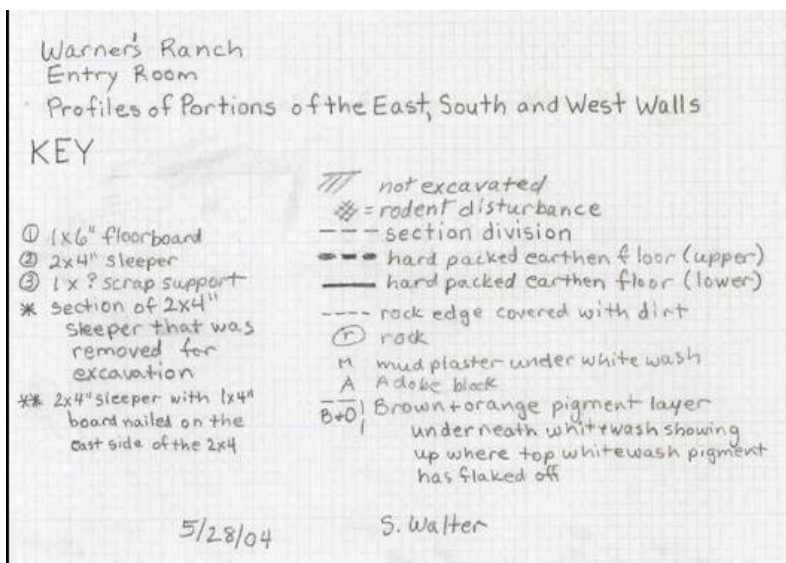 Warner's Ranch
Entry Room
Profiles of Portions of the East, South and West Walls
KEY
① 1x6" floorboard
② 2x4" sleeper
③ 1 x ? scrap support
* section of 2x4"
sleeper that was
removed for
excavation
** 2x4" sleeper with 1x4"
board nailed on the
east side of the 2x4
not excavated
= rodent disturbance
section division
hard packed earthen floor (upper)
hard packed earthen floor (lower)
rock edge covered with dirt
r rock
M mud plaster under white wash
A Adobe block
B+O Brown + orange pigment layer
underneath whitewash showing
up where top whitewash pigment
has flaked off
5/28/04
S. Walter